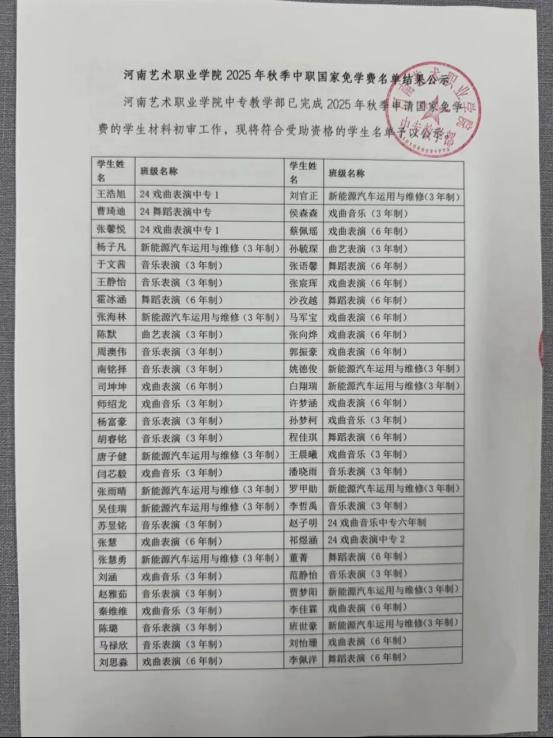 河南艺术职业学院 2025 年秋季中职国家免学费名单结果公示
河南艺术职业学院中专教学部已完成 2025 年秋季申请国家免学
费的学生材料初审工作，现将符合受助资格的学生名单予以公示。
学生姓名 班级名称 学生姓名 班级名称
王浩旭 24 戏曲表演中专 1 刘官正 新能源汽车运用与维修(3 年制)
曹琦迪 24 舞蹈表演中专 侯森森 戏曲音乐（3 年制）
张馨悦 24 戏曲表演中专 1 蔡佩瑶 戏曲表演（6 年制）
杨子凡 新能源汽车运用与维修（3 年制） 孙毓琛 曲艺表演（3 年制）
于文茜 音乐表演（3 年制） 张语馨 舞蹈表演（6 年制）
王静怡 音乐表演（3 年制） 张宸珲 戏曲表演（6 年制）
霍冰涵 舞蹈表演（6 年制） 沙孜越 舞蹈表演（6 年制）
张海林 新能源汽车运用与维修（3 年制） 马军宝 戏曲表演（6 年制）
陈默 曲艺表演（3 年制） 张向烨 戏曲表演（6 年制）
周澳伟 音乐表演（3 年制） 郭振豪 戏曲表演（6 年制）
南铭择 音乐表演（3 年制） 姚德俊 新能源汽车运用与维修(3 年制)
司坤坤 戏曲表演（6 年制） 白翔瑞 新能源汽车运用与维修(3 年制)
师绍龙 戏曲音乐（3 年制） 许梦涵 戏曲表演（6 年制）
杨富豪 音乐表演（3 年制） 孙梦柯 戏曲表演（6 年制）
胡睿铭 音乐表演（3 年制） 程佳琪 舞蹈表演（6 年制）
唐子健 新能源汽车运用与维修（3 年制） 王晨曦 戏曲表演（6 年制）
闫芯毅 戏曲音乐（3 年制） 潘晓雨 音乐表演（3 年制）
张雨晴 新能源汽车运用与维修（3 年制） 罗甲勋 新能源汽车运用与维修(3 年制)
吴佳瑞 新能源汽车运用与维修（3 年制） 李哲禹 音乐表演（3 年制）
苏昱铭 音乐表演（3 年制） 赵子明 24 戏曲音乐中专六年制
张慧 戏曲表演（6 年制） 祁煜涵 24 戏曲表演中专 2
张慧勇 新能源汽车运用与维修（3 年制） 董菁 舞蹈表演（6 年制）
刘涵 戏曲音乐（3 年制） 范静怡 音乐表演（3 年制）
赵雅茹 音乐表演（3 年制） 贾梦阳 新能源汽车运用与维修(3 年制)
秦维维 戏曲表演（6 年制） 李佳霖 戏曲表演（6 年制）
陈璐 音乐表演（3 年制） 班世豪 新能源汽车运用与维修(3 年制)
马禄欣 音乐表演（3 年制） 刘怡珊 戏曲表演（6 年制）
刘思淼 戏曲表演（6 年制） 李佩洋 舞蹈表演（6 年制）